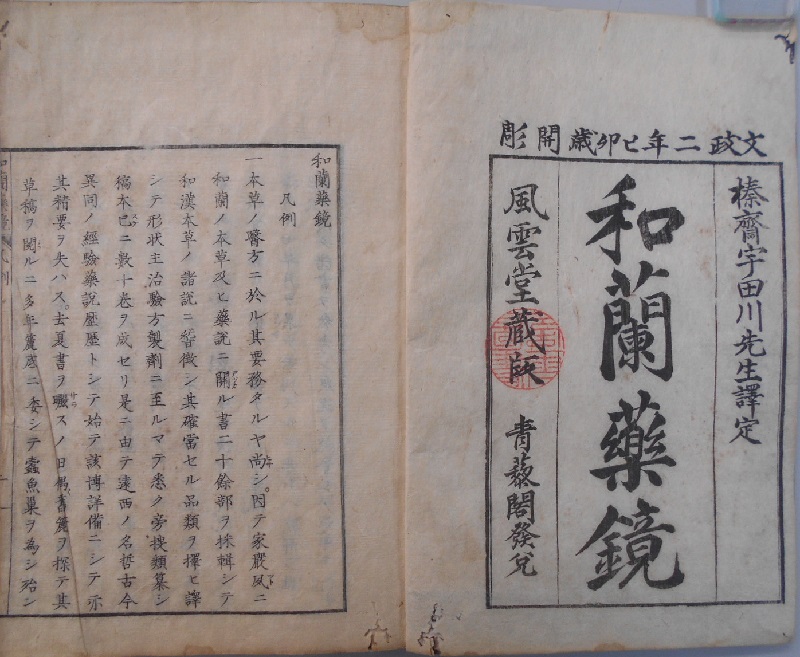 文政二年己卯歳開彫
榛齋宇田川先生譯定
和蘭藥鏡
風雲堂蔵版
青藜閣發兌
和蘭藥鏡
凡例
一本草ノ醫方ニ於ル其要務タルヤ尚シ。因テ家嚴夙ニ
和蘭ノ本草及ヒ藥説ニ關ル書二十餘部ヲ採輯シテ
和漢本草ノ諸説ニ質徴シ其確當セル品類ヲ擇ヒ譯
シテ形状主治驗方製劑ニ至ルマテ悉ク旁捜類纂シ
稿本已ニ數十巻ヲ成セリ是ニ由テ遠西ノ名哲古今
異同ノ經驗藥説歴歴トシテ始テ該博詳備ニシテ示
其精要ヲ失ハス。去夏書ヲ曬スノ日舊書篋ヲ探テ其
草稿ヲ閲ルニ多年篋底ニ委シテ蠹魚巣ヲ為シ殆ン